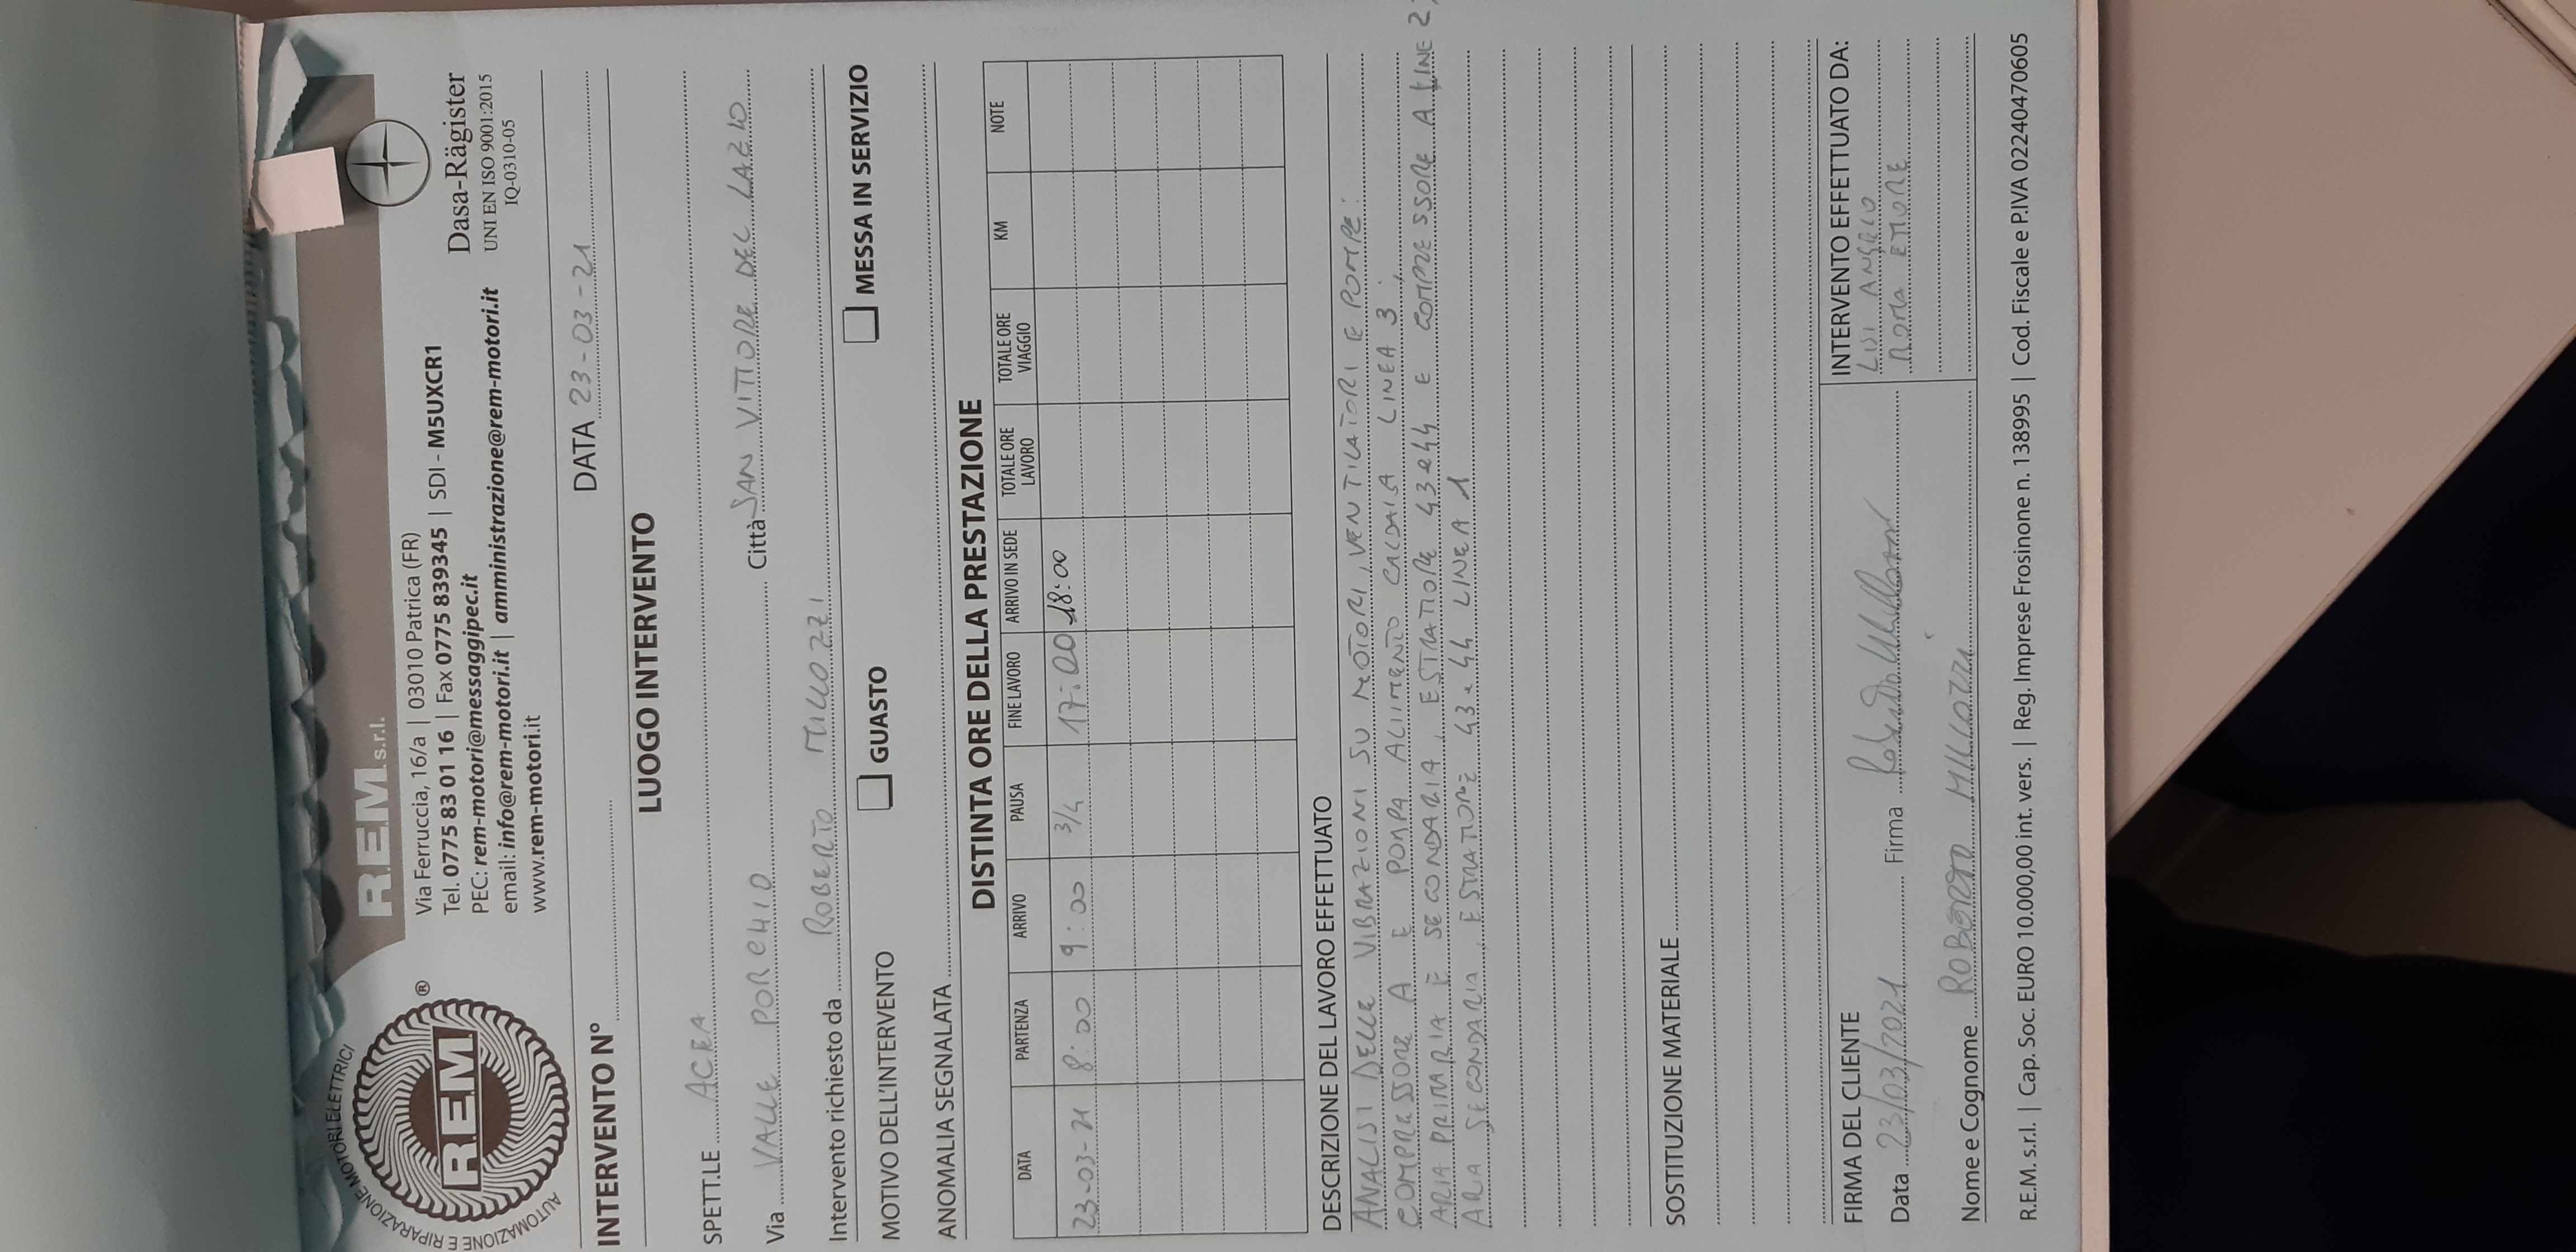 AUTOMAZIONE E RIPARAZIONE MOTORI ELETTRICI
REM
®
R.E.M. s.r.l.
Via Ferruccia, 16/a | 03010 Patrica (FR)
Tel. 0775 83 01 16 | Fax 0775 839345 | SDI - M5UXCR1
PEC: rem-motori@messaggipec.it
email: info@rem-motori.it | amministrazione@rem-motori.it
www.rem-motori.it
Dasa-Rägister
UNI EN ISO 9001:2015
IQ-0310-05
INTERVENTO N° DATA 23-03-21
LUOGO INTERVENTO
SPETT.LE ACEA
Via VALLE PORCHIO Città SAN VITTORE DEL LAZIO
Intervento richiesto da ROBERTO MILLOZZI
MOTIVO DELL'INTERVENTO GUASTO MESSA IN SERVIZIO
ANOMALIA SEGNALATA
DISTINTA ORE DELLA PRESTAZIONE
DATA PARTENZA ARRIVO PAUSA FINE LAVORO ARRIVO IN SEDE TOTALE ORE LAVORO TOTALE ORE VIAGGIO KM NOTE
23-03-21 8:00 9:00 3/4 17:00 18:00
DESCRIZIONE DEL LAVORO EFFETTUATO
ANALISI DELLE VIBRAZIONI SU MOTORI, VENTILATORI E POMPE:
COMPRESSORE A E POMPA ALIMENTO CALDAIA LINEA 3,
ARIA PRIMARIA E SECONDARIA, ESTRATTORE 43 e 44 E COMPRESSORE A LINE 2,
ARIA SECONDARIA, ESTRATTORE 43 e 44 LINEA 1
SOSTITUZIONE MATERIALE
FIRMA DEL CLIENTE
Data 23/03/2021 Firma Roberto Millozzi
Nome e Cognome ROBERTO MILLOZZI
INTERVENTO EFFETTUATO DA:
LISI ANGELO
ROMA ETTORE
R.E.M. s.r.l. | Cap. Soc. EURO 10.000,00 int. vers. | Reg. Imprese Frosinone n. 138995 | Cod. Fiscale e P.IVA 02240470605